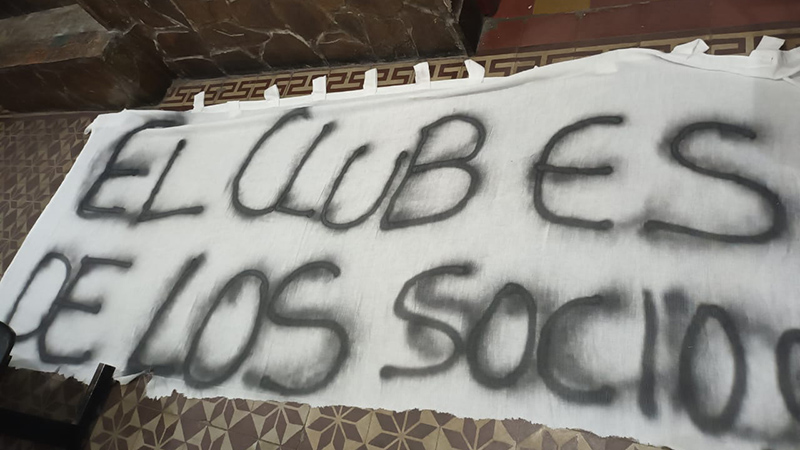 EL CLUB ES
DE LOS SOCIOS